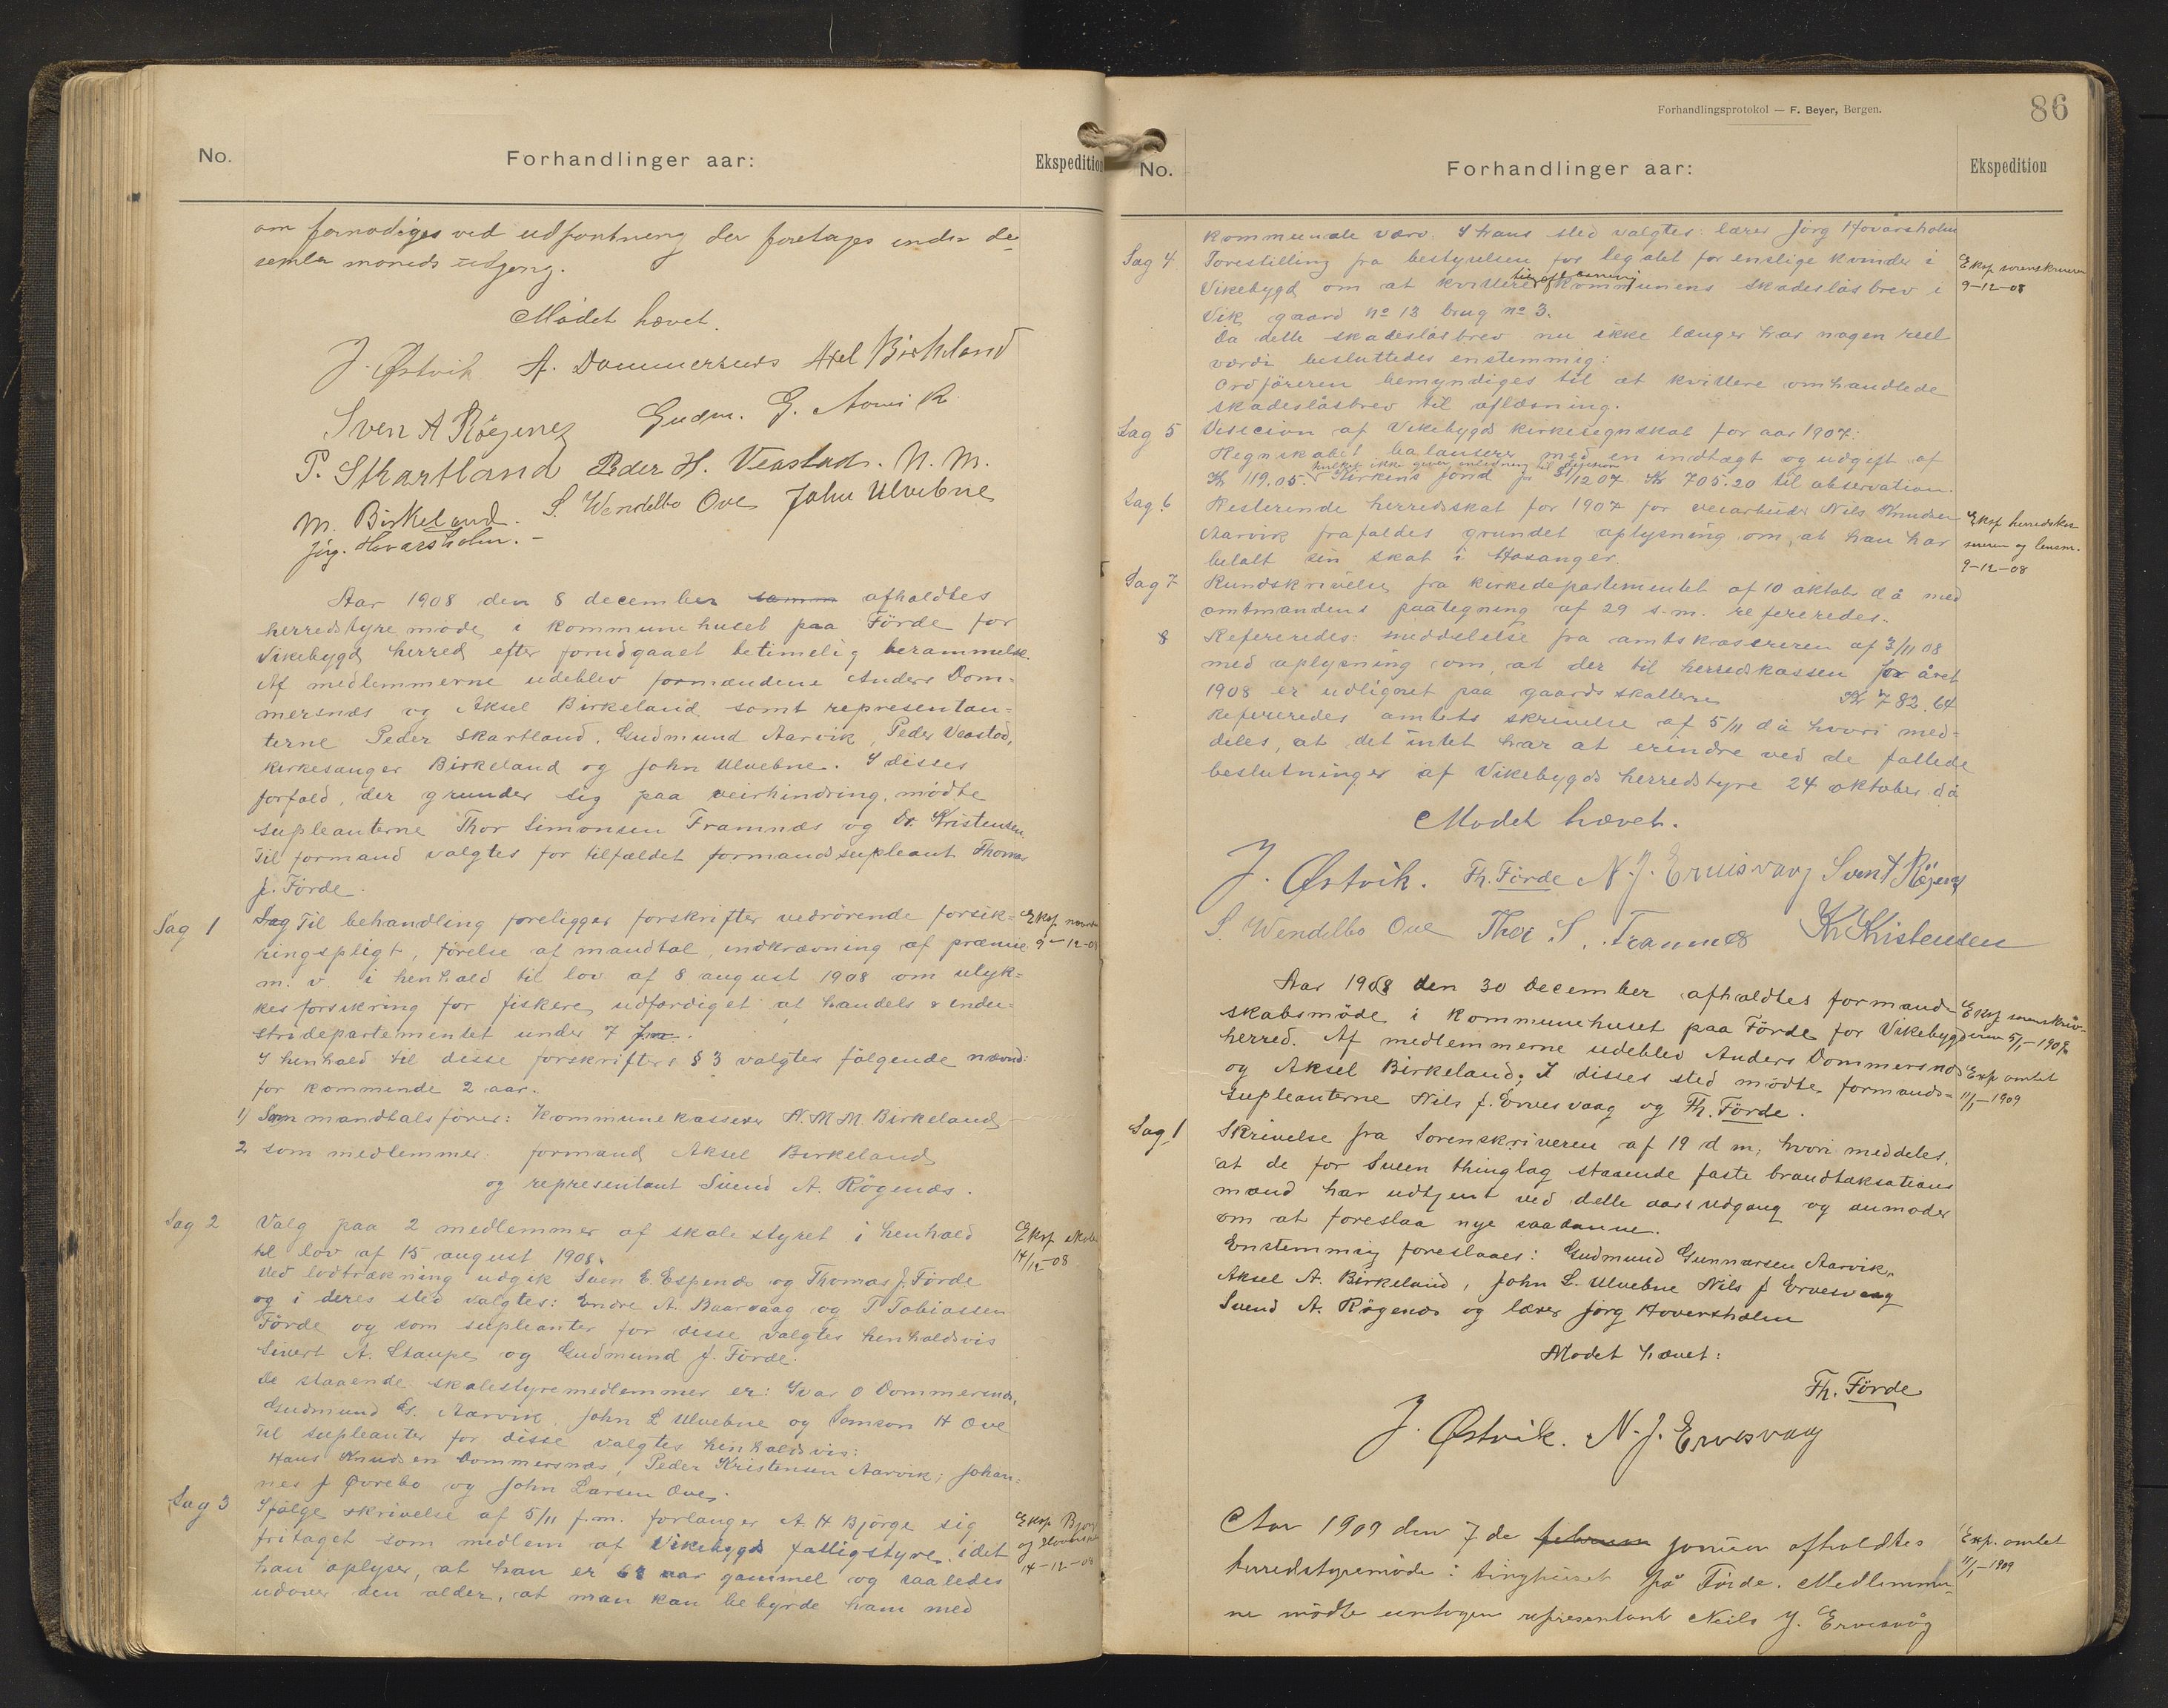 No.
Forhandlinger aar:
Ekspedition
om fornødiges ved udfontning der foretages inden de-
sember moneds udgong.
Mødet hævet.
J. Østvik A. Dommersnes Axel Birkeland
Sven A Rögenes Gudm. G. Aarvik
P. Skartland Peder H. Veastad. N. M.
M. Birkeland. S. Wendelbo Ove John Ulvebne
Jörg. Hovarsholm. -
Aar 1908 den 8 december afholdtes
herredstyremöde i kommunehuset paa Förde for
Vikebygd herred efter forudgaaet betimelig berammelse.
Af medlemmerne udeblev formændene Anders Dom-
mersnæs og Aksel Birkeland samt representan-
terne Peder Skartland, Gudmund Aarvik, Peder Veastad,
kirkesanger Birkeland og John Ulvebne. I disses
forfald, der grunder sig paa veirhindring, mödte
supleanterne Thor Simonsen Framnæs og Kr. Kristensen.
Til formand valgtes for tilfældet formandssupleant Thomas
J. Förde.
Sag 1 Sag Til behandling foreligger forskrifter vedrörende forsik- Eksp nævnd
ringspligt, förelse af mandtal, indkrævning af præmie 9-12-08
m. v. i henhold til lov af 8 august 1908 om ulyk-
kesforsikring for fiskere, udfærdiget af handels & indu-
stridepartementet under 7
I henhold til disse forskrifters § 3 valgtes fölgende nævnd:
for kommende 2 aar.
1) Som mandtalsförer: Kommunekasserer N. M M. Birkeland
2 som medlemmer: formand Aksel Birkeland
og representant Svend A. Rögenæs.
Sag 2 Valg paa 2 medlemmer af skolestyret i henhold Eksp skole
til lov af 15 august 1908. 14/12-08
Ved lodtrækning udgik Sven E. Espenæs og Thomas J. Förde
og i deres sted valgtes: Endre A. Baarvaag og T Tobiassen
Förde og som supleanter for disse valgtes henholdsvis
Sivert A. Staupe og Gudmund J. Förde.
De staaende skolestyremedlemmer er: Ivar O Dommersnæs,
Gudmund G. Aarvik, John L Ulvebne og Samson H Ove
Til supleanter for disse valgtes henholdsvis:
Hans Knudsen Dommersnæs, Peder Kristensen Aarvik, Johan-
nes J Øvrebö og John Larsen Ove.
Sag 3 Ifölge skrivelse af 5/11 f.m. forlanger A. H Bjørge sig Eksp Bjørge
fritaget som medlem af Vikebygds fattigstyre, idet og Hovarsholm
han oplyser, at han er 68 aar gammel og saaledes 14-12-08
udover den alder, at man kan bebyrde ham med
Forhandlingsprotokol — F. Beyer, Bergen.
86
No.
Forhandlinger aar:
Ekspedition
kommunale værv. I hans sted valgtes lærer Jörg Hovarsholm
Sag 4 Forestilling fra bestyrelsen for legatet for enslige kvinder i Eksp sorenskriveren
Vikebygd om at kvittere til aflæsning kommunens skadeslösbrev i 9-12-08
Vik gaard no 13 brug no 3.
Da dette skadeslösbrev nu ikke længer har nogen reel
værdi besluttedes enstemmig:
Ordföreren bemyndiges til at kvittere omhandlede
skadeslösbrev til aflæsning.
Sag 5 Desecion af Vikebygds kirkeregnskab for aar 1907:
Regnskabet balanserer med en indtægt og udgift af
Kr 119.05. hvilket ikke giver anledning til desecion Kirkens fond pr 31/12 07 Kr 705.20 til observation.
Sag 6 Resterende herredsskat for 1907 for veiarbeider Nils Knudsen Eksp herredskas-
Aarvik frafaldes grundet oplysning om, at han har sereren og lensm.
betalt sin skat i Hosanger. 9-12-08
Sag 7 Rundskrivelse fra kirkedepartementet af 10 oktober d å med
amtmandens paategning af 29 s.m. refereredes.
8 Refereredes: meddelelse fra amtskassereren af 3/11 08
med oplysning om, at der til herredskassen for året
1908 er udlignet paa gaardsskatterne Kr 782.64
Refereredes amtets skrivelse af 5/11 då hvori med-
deles, at det intet har at erindre ved de fattede
beslutninger af Vikebygds herredstyre 24 oktober då
Mödet hævet.
J. Østvik. Th. Förde N. J. Ervesvaag Sven A Rögenes
S Wendelbo Ove Thor S. Framnes Kr Kristensen
Aar 1908 den 30 december afholdtes formand- Eksp sorenskriv-
skabsmöde i kommunehuset paa Förde for Vikebygd eren 5/1-1909
herred. Af medlemmerne udeblev Anders Dommersnæs Exp amtet
og Aksel Birkeland; I disses sted mödte formands- 11/1-1909
supleanterne Nils J. Ervesvaag og Th. Förde.
Sag 1 Skrivelse fra Sorenskriveren af 19 d m, hvori meddeles,
at de for Sveen thinglag staaende faste brandtaksations
mænd har udtjent ved dette aars udgang og anmoder
om at foreslaa nye saadanne.
Enstemmig foreslaaes: Gudmund Gunnarsen Aarvik,
Aksel A. Birkeland, John L. Ulvebne Nils J Ervesvaag
Svend A. Rögenæs og lærer Jörg Hovershólm
Mödet hævet:
Th. Förde
J. Østvik. N. J. Ervesvaag
Aar 1909 den 7de januar afholdtes Exp. amtet
herredsstyremöde i tinghuset på Förde. Medlemmer- 11/1-1909
ne mödte untagen representant Neils J. Ervesvåg